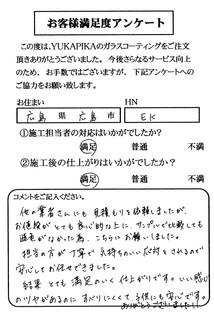 お客様満足度アンケート
この度は、YUKAPIKAのガラスコーティングをご注文
頂きありがとうございました。今後さらなるサービス向上
のため、お手数ではございますが、下記アンケートへの
ご協力をお願い致します。
お住まい HN
広島 県 広島 市 EK
①施工担当者の対応はいかがでしたか?
満足 普通 不満
②施工後の仕上がりはいかがでしたか?
満足 普通 不満
コメントをご記入ください。
他の業者さんにも見積もりを依頼しましたが、
お値段がとても良心的な上に、サンプルで比較しても
遜色がなかった為、こちらにお願いしました。
担当の方が丁寧で気持ちのいい対応をされるので
安心してお任せできました。
結果 とても満足のいく仕上がりです。いい感じ
のツヤがあるのに すべりにくくて 子供にも安心です。
ありがとうございました!!